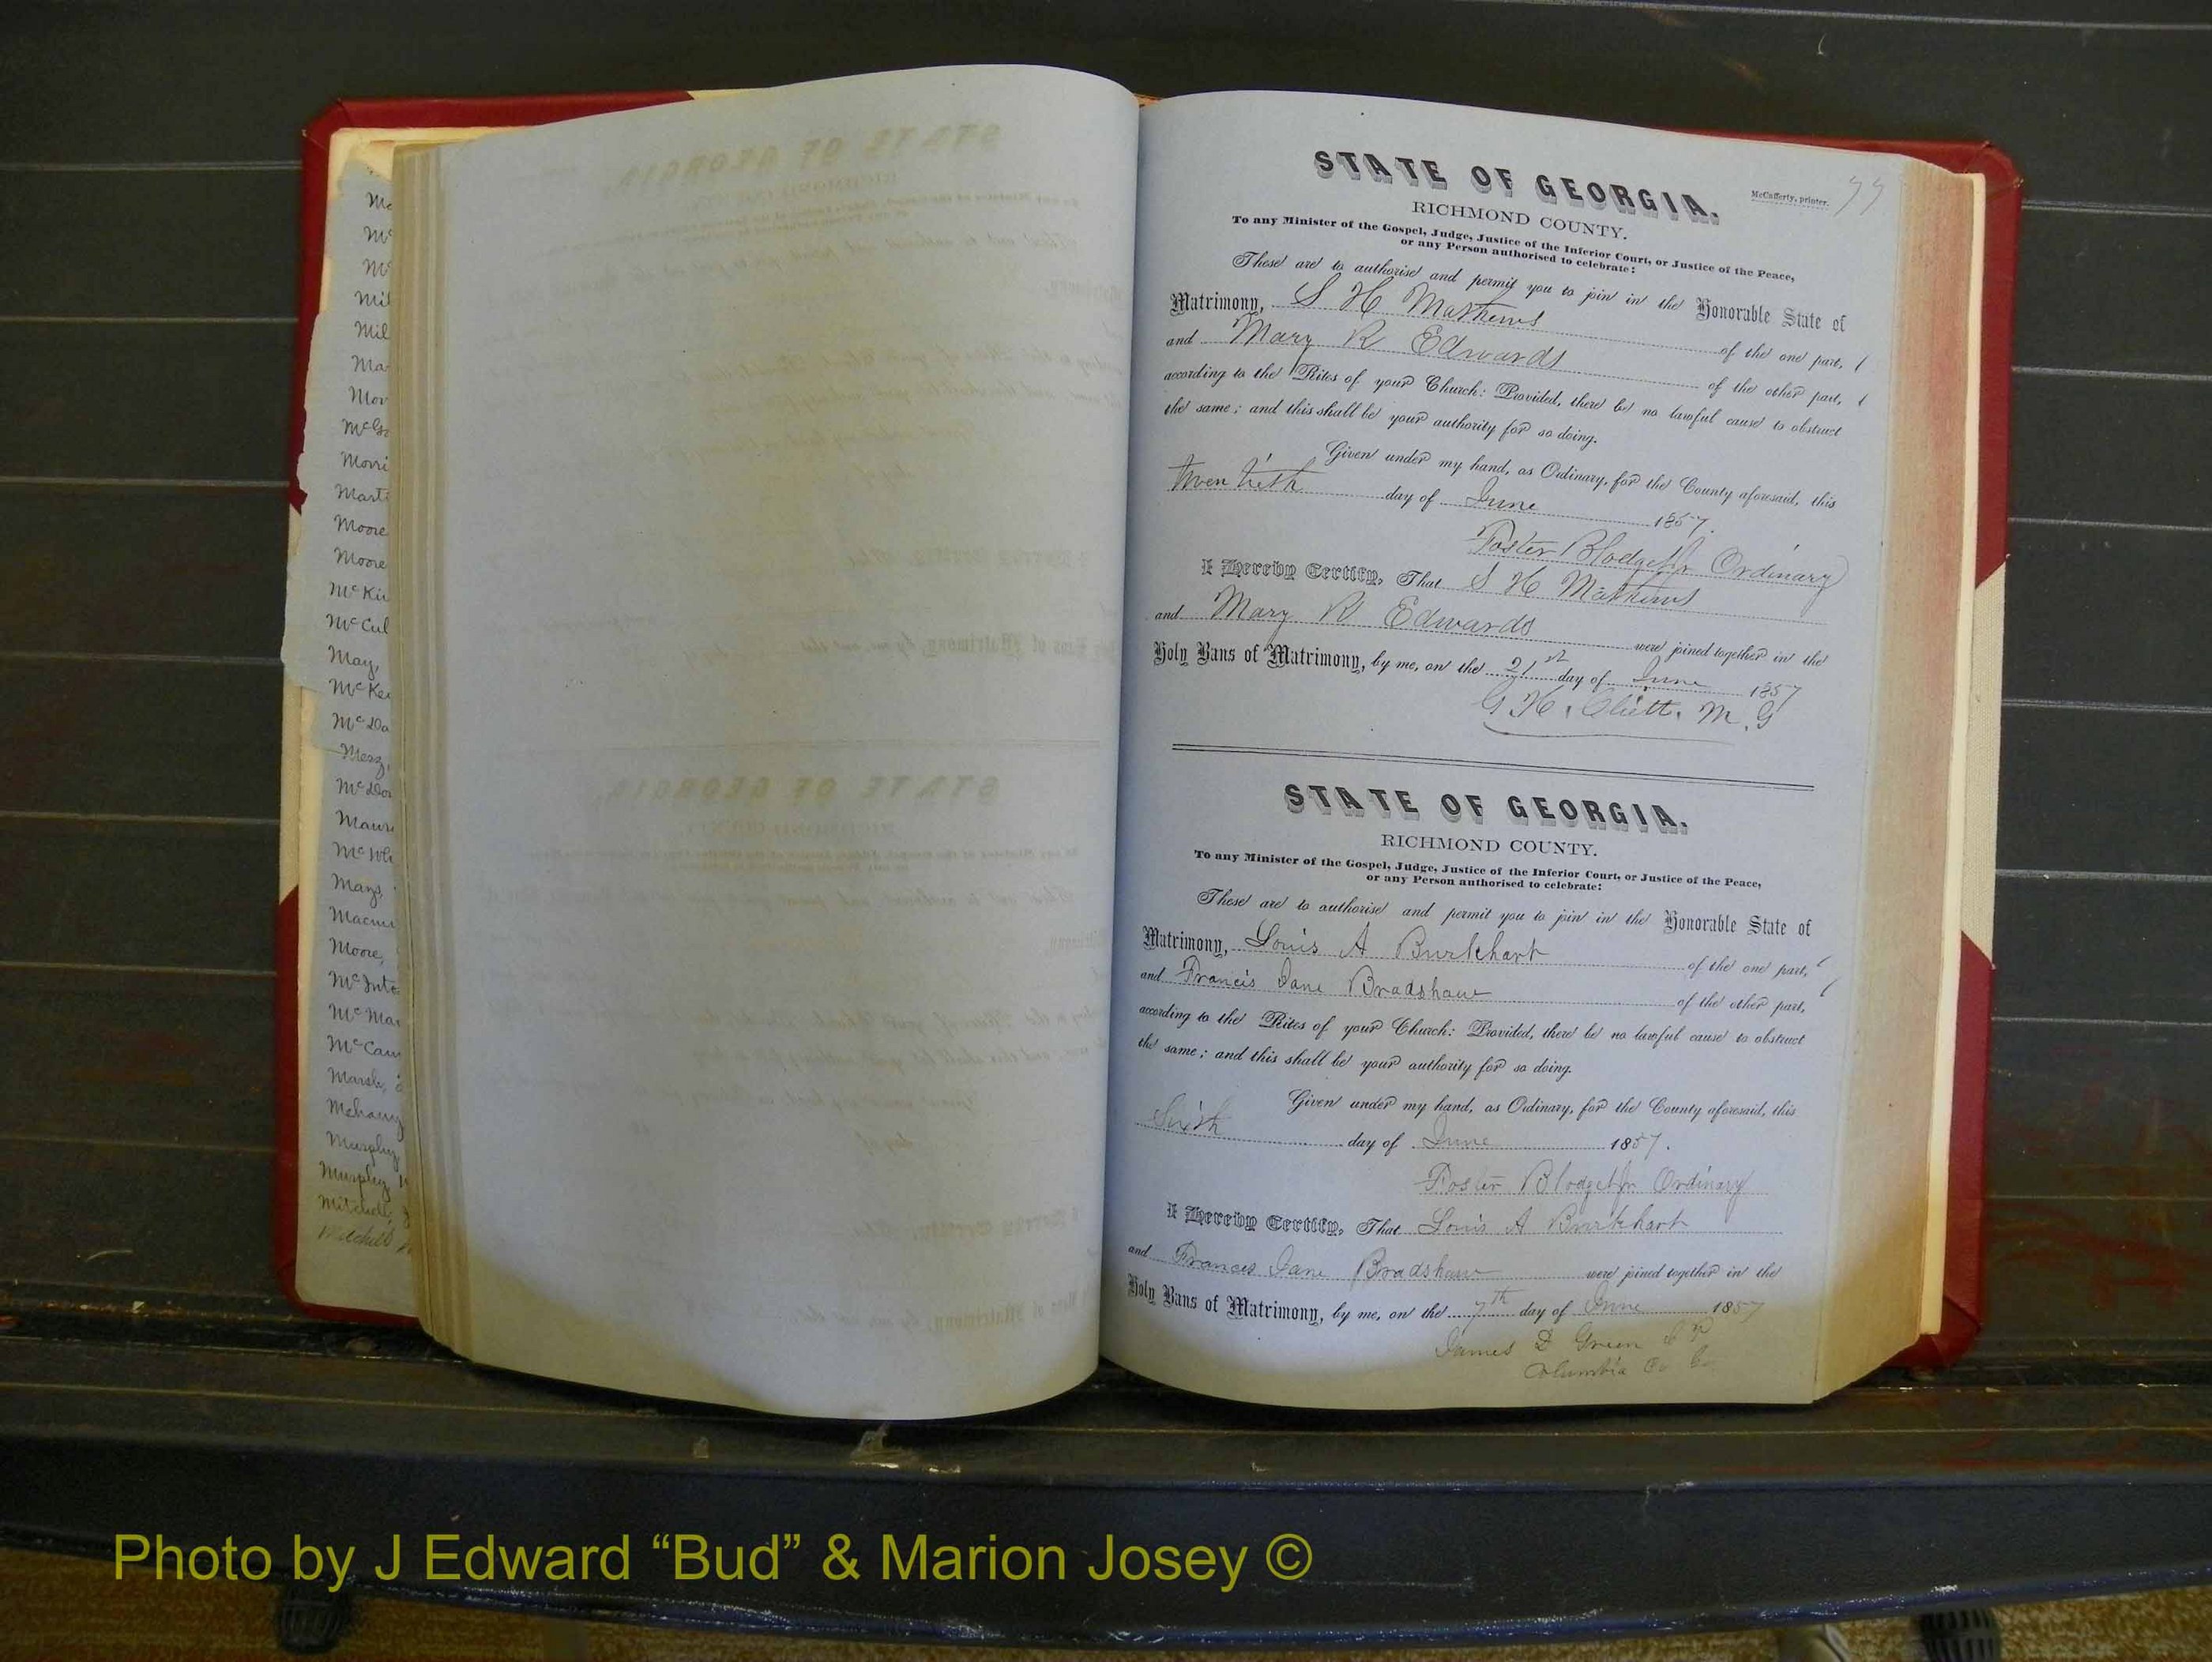 Mil
Mil
Ma
Mor
McGa
Morri
Mart
Moore
Moore
McKin
McCul
May,
McKe
McDa
Merz,
McDon
Maur
McWh
Mays,
Macmu
Moore,
McInt
McMa
McCam
Marsh,
Mehany
Murphy
Murphy,
Mitchell,
Mitchell
STATE OF GEORGIA.
McCafferty, printer.
77
RICHMOND COUNTY.
To any Minister of the Gospel, Judge, Justice of the Inferior Court, or Justice of the Peace,
or any Person authorised to celebrate:
These are to authorise and permit you to join in the Honorable State of
Matrimony, S H Mathews of the one part,
and Mary R Edwards of the other part,
according to the Rites of your Church: Provided, there be no lawful cause to obstruct
the same; and this shall be your authority for so doing.
Given under my hand, as Ordinary, for the County aforesaid, this
twentieth day of June 1857.
Foster Blodget Jr Ordinary
I Hereby Certify, That S H Mathews
and Mary R Edwards were joined together in the
Holy Bans of Matrimony, by me, on the 21st day of June 1857
G. H. Cliett. M. G
STATE OF GEORGIA.
RICHMOND COUNTY.
To any Minister of the Gospel, Judge, Justice of the Inferior Court, or Justice of the Peace,
or any Person authorised to celebrate:
These are to authorise and permit you to join in the Honorable State of
Matrimony, Louis A Burkhart of the one part,
and Francis Jane Bradshaw of the other part,
according to the Rites of your Church: Provided, there be no lawful cause to obstruct
the same; and this shall be your authority for so doing.
Given under my hand, as Ordinary, for the County aforesaid, this
Sixth day of June 1857.
Foster Blodget Jr Ordinary
I Hereby Certify, That Louis A Burkhart
and Frances Jane Bradshaw were joined together in the
Holy Bans of Matrimony, by me, on the 7th day of June 1857
James D Green J P
Columbia Co Ga
Photo by J Edward “Bud” & Marion Josey ©